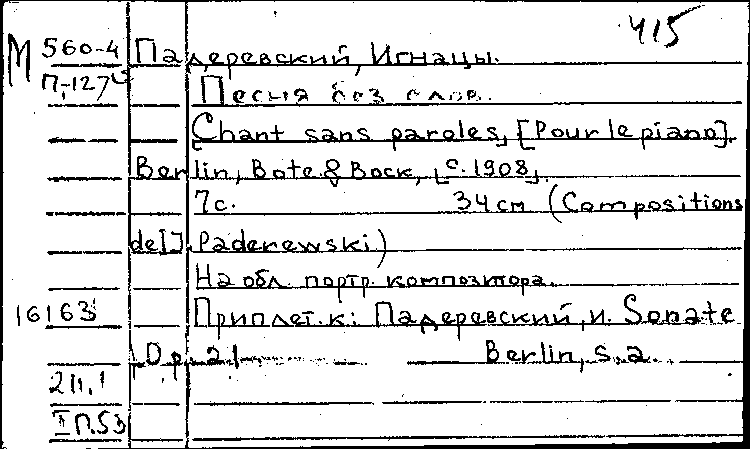 415
М 560-4 Падеревский, Игнацы.
П-127 Песня без слов.
Chant sans paroles, [Pour le piano].
Berlin, Bote & Bock, [c. 1908].
7с. 34 см (Compositions
de I. Paderewski)
На обл. портр. композитора.
16163 Приплет. к: Падеревский, И. Sonate
Op. 21 Berlin, s.a.
I П.53